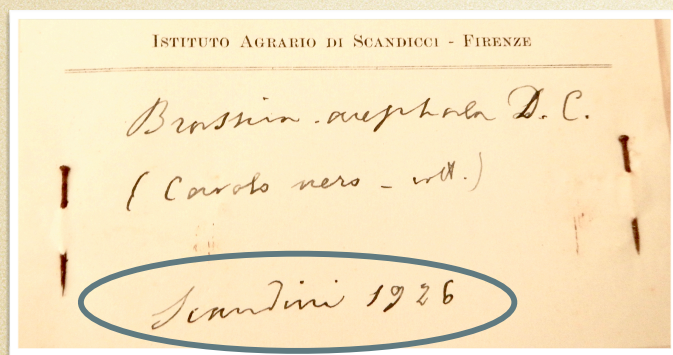 ISTITUTO AGRARIO DI SCANDICCI - FIRENZE
Brassica acephala D. C.
( Cavolo nero - colt.)
Scandicci 1926